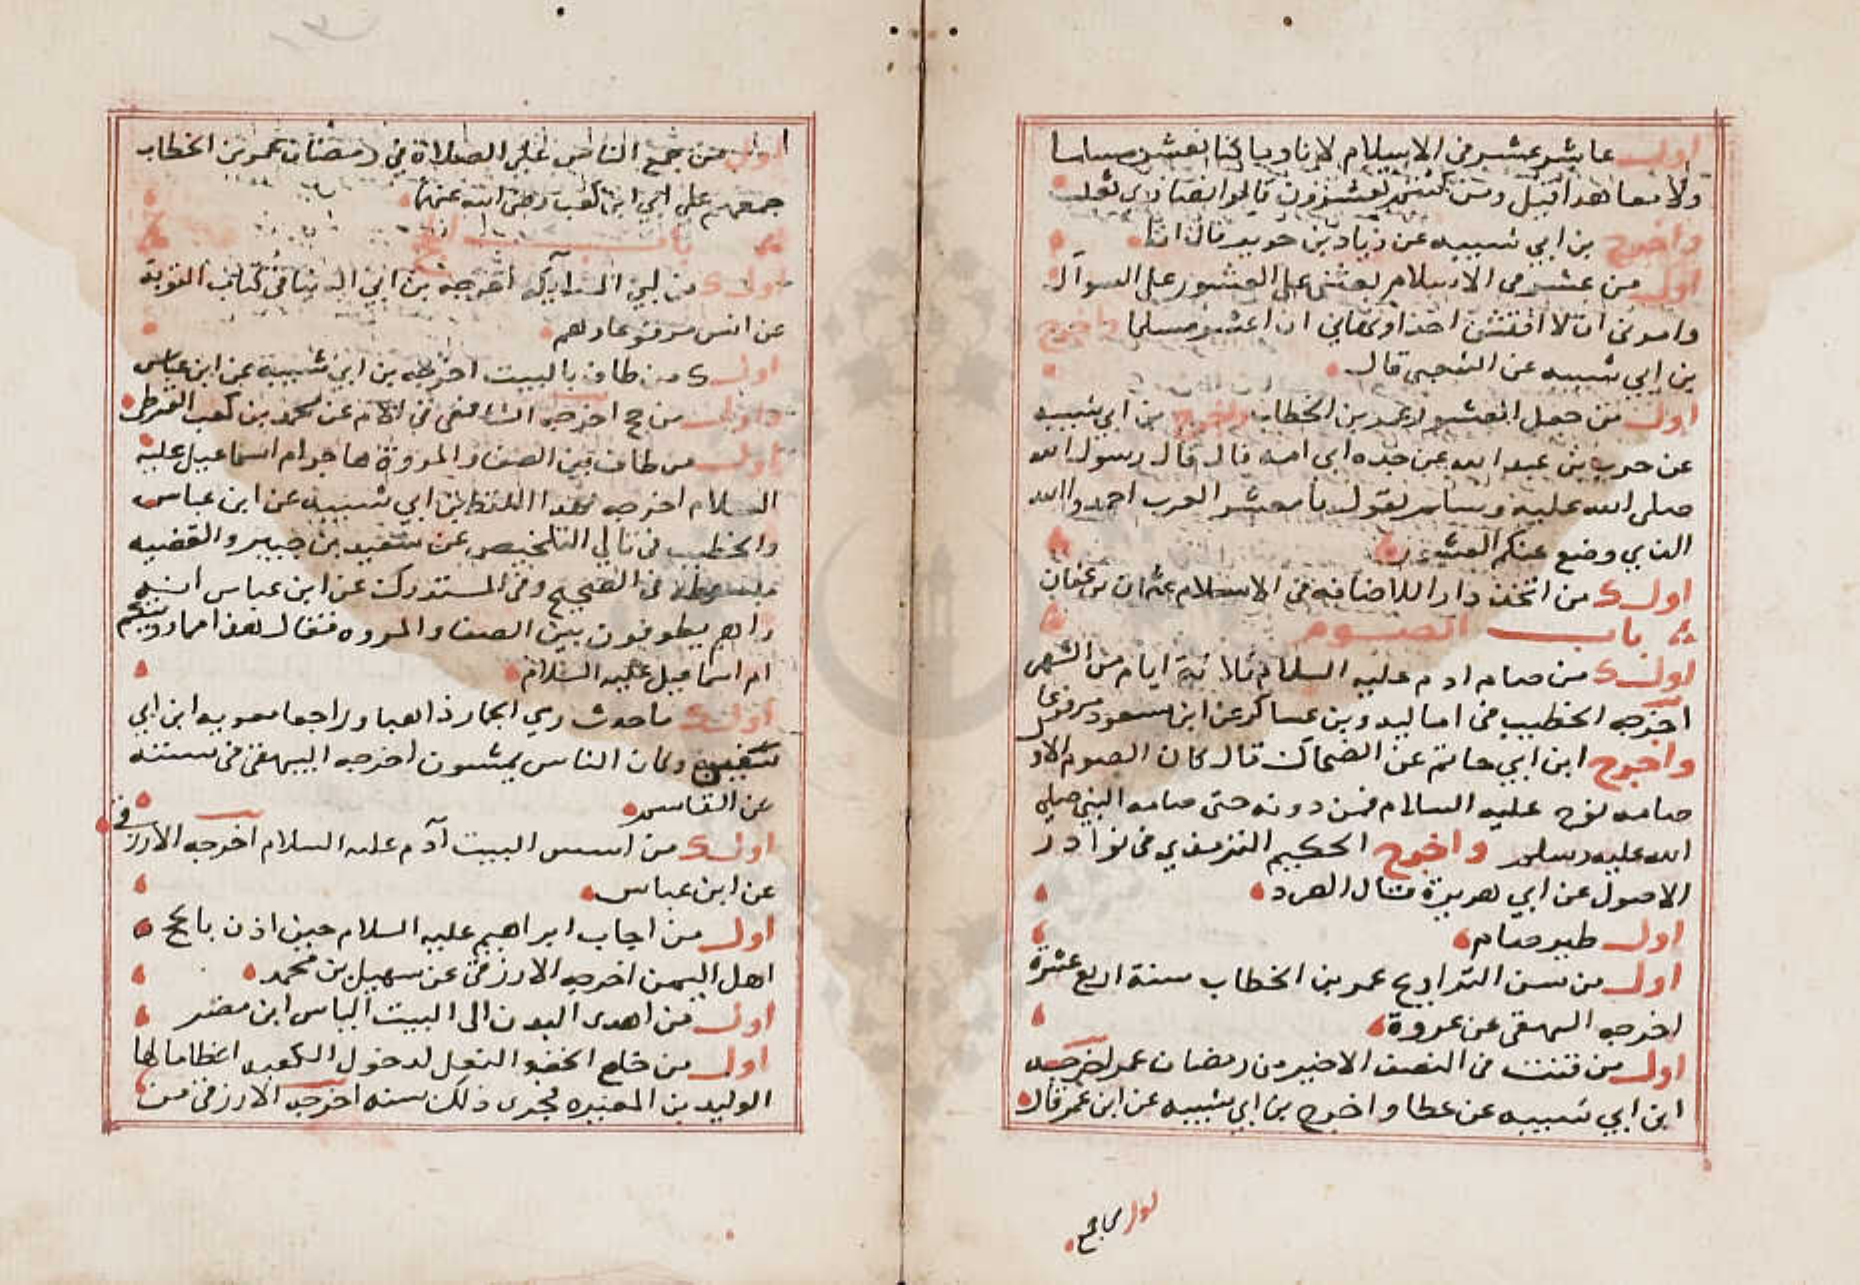 اول عاشر عشر في الاسلام لانا ويا كنا نعشر مسلما
ولا معاهدا قيل ومن كنتم تعشرون قالوا نصارى تغلب
واخرج بن ابي شيبه عن زياد بن حدير قال انا
اول من عشر في الاسلام بعثني على العشور عمر
وامرني ان لا افتش احدا ونهاني ان اعشر مسلما واخرج
بن ابي شيبه عن الشعبي قال
اول من جعل العشور عمر بن الخطاب واخرج بن ابي شيبه
عن حرب بن عبد الله عن جده ابي امه قال قال رسول الله
صلى الله عليه وسلم يقول يا معشر العرب احمدوا الله
الذي وضع عنكم العشور
اولك من اتخذ دار اللاضافه في الاسلام عثمان بن عفان
باب الصوم
اولك من صام ادم عليه السلام ثلاثة ايام من الشهر
اخرجه الخطيب في اماليه وبن عساكر عن ابن مسعود مرفوعا
واخرج ابن ابي حاتم عن الضحاك قال كان الصوم الاول
صامه نوح عليه السلام فمن دونه حتى صامه النبي صلى
الله عليه وسلم واخرج الحكيم الترمذي في نوادر
الاصول عن ابي هريرة قال الصرد
اول طير صام
اول من سن التراويح عمر بن الخطاب سنة اربع عشرة
اخرجه البيهقي عن عروة
اول من قنت في النصف الاخير من رمضان عمر اخرجه
ابن ابي شيبه عن عطا واخرج بن ابي شيبه عن ابن عمر قال
اول من جمع الناس على الصلاة في رمضان عمر بن الخطاب
جمعهم على ابي ابن كعب رضي الله عنهما
باب الحج
اولك من لبى الملايكه اخرجه بن ابي الدنيا في كتاب التوبة
عن انس مرفوعا
اولك من طاف بالبيت اخرجه بن ابي شيبة عن ابن عباس
واول من حج اخرجه الشافعي في الام عن محمد بن كعب القرظي
اول من طاف بين الصفا والمروة هاجر ام اسماعيل عليه
السلام اخرجه بهذا اللفظ بن ابي شيبه عن ابن عباس
والخطيب في تالي التلخيص عن سعيد بن جبير والقضيه
مبسوطة في الصحيح وفي المستدرك عن ابن عباس انه
راهم يطوفون بين الصفا والمروه فقال هذا مما اورثتكم
ام اسماعيل عليه السلام
اولك ما حدث رمي الجمار ذاهبا وراجعا معويه ابن ابي
سفين وكان الناس يمشون اخرجه البيهقي في سننه
عن القاسم
اولك من اسس البيت آدم عليه السلام اخرجه الازرقي
عن ابن عباس
اول من اجاب ابراهيم عليه السلام حين اذن بالحج
اهل اليمن اخرجه الازرقي عن سهيل بن محمد
اول من اهدى البدن الى البيت الياس ابن مضر
اول من خلع الخف والنعل لدخول الكعبه اعظاما لها
الوليد بن المغيره فجرى ذلك سنه اخرجه الازرقي من